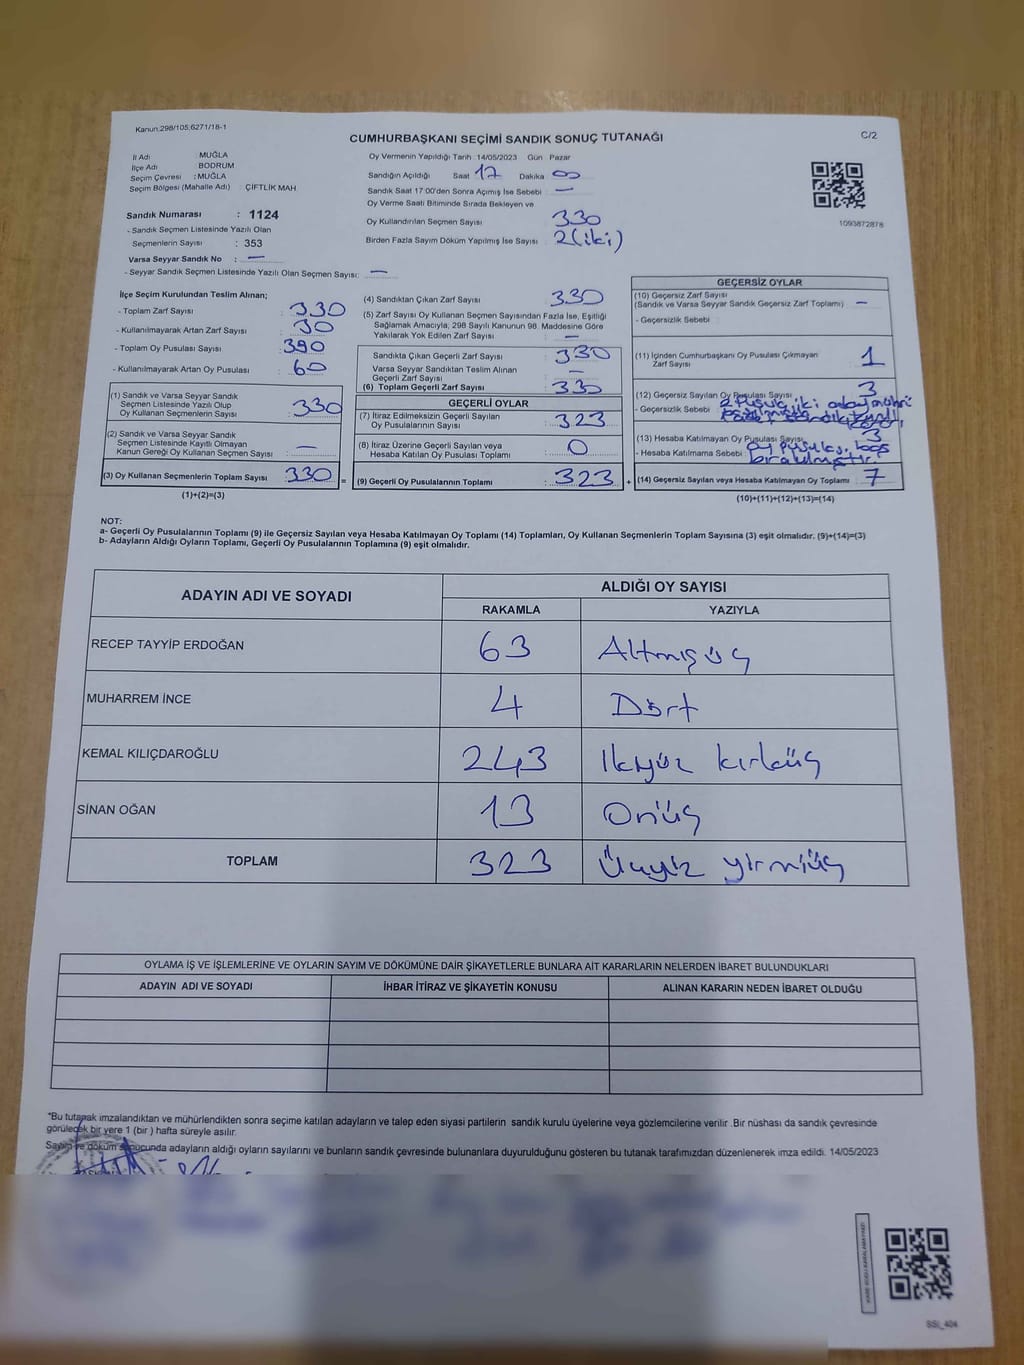 Kanun:298/105;6271/18-1
CUMHURBAŞKANI SEÇİMİ SANDIK SONUÇ TUTANAĞI
C/2
İl Adı : MUĞLA
İlçe Adı : BODRUM
Seçim Çevresi : MUĞLA
Seçim Bölgesi (Mahalle Adı) : ÇİFTLİK MAH.
Sandık Numarası : 1124
- Sandık Seçmen Listesinde Yazılı Olan
Seçmenlerin Sayısı : 353
Varsa Seyyar Sandık No : —
- Seyyar Sandık Seçmen Listesinde Yazılı Olan Seçmen Sayısı: —
Oy Vermenin Yapıldığı Tarih :14/05/2023 Gün Pazar
Sandığın Açıldığı Saat 17 Dakika 00
Sandık Saat 17:00'den Sonra Açımış İse Sebebi —
Oy Verme Saati Bitiminde Sırada Bekleyen ve
Oy Kullandırılan Seçmen Sayısı 330
Birden Fazla Sayım Döküm Yapılmış İse Sayısı 2 (iki)
1093872878
İlçe Seçim Kurulundan Teslim Alınan;
- Toplam Zarf Sayısı : 330
- Kullanılmayarak Artan Zarf Sayısı : 30
- Toplam Oy Pusulası Sayısı : 390
- Kullanılmayarak Artan Oy Pusulası : 60
(1) Sandık ve Varsa Seyyar Sandık
Seçmen Listesinde Yazılı Olup
Oy Kullanan Seçmenlerin Sayısı : 330
(2) Sandık ve Varsa Seyyar Sandık
Seçmen Listesinde Kayıtlı Olmayan
Kanun Gereği Oy Kullanan Seçmen Sayısı : —
(3) Oy Kullanan Seçmenlerin Toplam Sayısı : 330 =
(1)+(2)=(3)
(4) Sandıktan Çıkan Zarf Sayısı : 330
(5) Zarf Sayısı Oy Kullanan Seçmen Sayısından Fazla İse, Eşitliği
Sağlamak Amacıyla; 298 Sayılı Kanunun 98. Maddesine Göre
Yakılarak Yok Edilen Zarf Sayısı : —
Sandıkta Çıkan Geçerli Zarf Sayısı : 330
Varsa Seyyar Sandıktan Teslim Alınan
Geçerli Zarf Sayısı : —
(6) Toplam Geçerli Zarf Sayısı : 330
GEÇERLİ OYLAR
(7) İtiraz Edilmeksizin Geçerli Sayılan
Oy Pusulasının Sayısı : 323
(8) İtiraz Üzerine Geçerli Sayılan veya
Hesaba Katılan Oy Pusulası Toplamı : 0
(9) Geçerli Oy Pusulalarının Toplamı : 323 +
GEÇERSİZ OYLAR
(10) Geçersiz Zarf Sayısı
(Sandık ve Varsa Seyyar Sandık Geçersiz Zarf Toplamı) —
- Geçersizlik Sebebi :
(11) İçinden Cumhurbaşkanı Oy Pusulası Çıkmayan
Zarf Sayısı 1
(12) Geçersiz Sayılan Oy Pusulası Sayısı : 3
- Geçersizlik Sebebi 2 Pusula iki aday mührü
(13) Hesaba Katılmayan Oy Pusulası Sayısı 3
- Hesaba Katılmama Sebebi oy pusulası boş
bırakılmıştır.
(14) Geçersiz Sayılan veya Hesaba Katılmayan Oy Toplamı : 7
(10)+(11)+(12)+(13)=(14)
NOT:
a- Geçerli Oy Pusulalarının Toplamı (9) ile Geçersiz Sayılan veya Hesaba Katılmayan Oy Toplamı (14) Toplamları, Oy Kullanan Seçmenlerin Toplam Sayısına (3) eşit olmalıdır. (9)+(14)=(3)
b- Adayların Aldığı Oyların Toplamı, Geçerli Oy Pusulalarının Toplamına (9) eşit olmalıdır.
ADAYIN ADI VE SOYADI
ALDIĞI OY SAYISI
RAKAMLA YAZIYLA
RECEP TAYYİP ERDOĞAN 63 Altmışüç
MUHARREM İNCE 4 Dört
KEMAL KILIÇDAROĞLU 243 Ikiyüz kırküç
SİNAN OĞAN 13 Onüç
TOPLAM 323 Üçyüz yirmiüç
OYLAMA İŞ VE İŞLEMLERİNE VE OYLARIN SAYIM VE DÖKÜMÜNE DAİR ŞİKAYETLERLE BUNLARA AİT KARARLARIN NELERDEN İBARET BULUNDUKLARI
ADAYIN ADI VE SOYADI İHBAR İTİRAZ VE ŞİKAYETİN KONUSU ALINAN KARARIN NEDEN İBARET OLDUĞU
*Bu tutanak imzalandıktan ve mühürlendikten sonra seçime katılan adayların ve talep eden siyasi partilerin sandık kurulu üyelerine veya gözlemcilerine verilir .Bir nüshası da sandık çevresinde
görülecek bir yere 1 (bir ) hafta süreyle asılır.
Sayım ve döküm sonucunda adayların aldığı oyların sayılarını ve bunların sandık çevresinde bulunanlara duyurulduğunu gösteren bu tutanak tarafımızdan düzenlenerek imza edildi. 14/05/2023
SSI_404